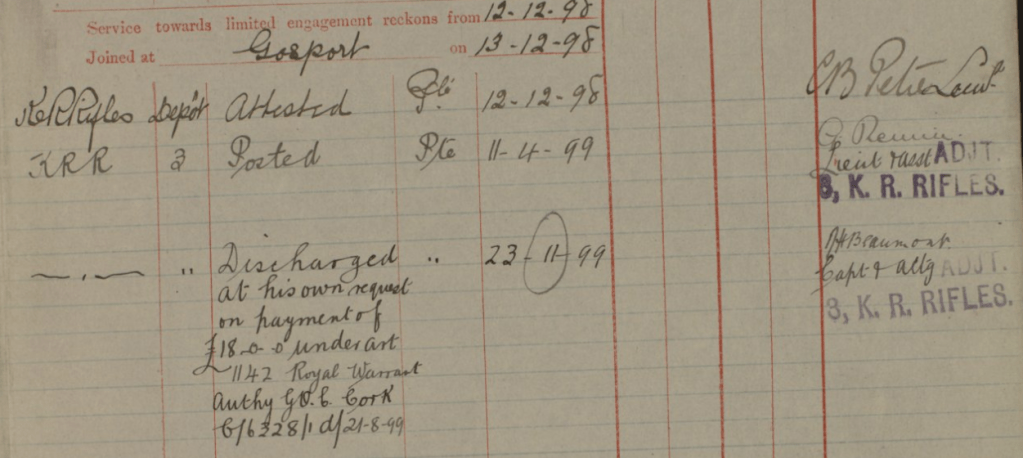 Service towards limited engagement reckons from 12-12-98
Joined at Gosport on 13-12-98
K.R.Rifles Depôt Attested Pte 12-12-98 Lieut.
KRR 3 Posted Pte 11-4-99
Lieut & asst ADJT.
3, K. R. RIFLES.
—„— „ Discharged „ 23-11-99 Beaumont.
at his own request Capt & actg ADJT.
on payment of 3, K. R. RIFLES.
£18-0-0 under art
1142 Royal Warrant
Authy G.O.C. Cork
C/6328/1 d/21-8-99